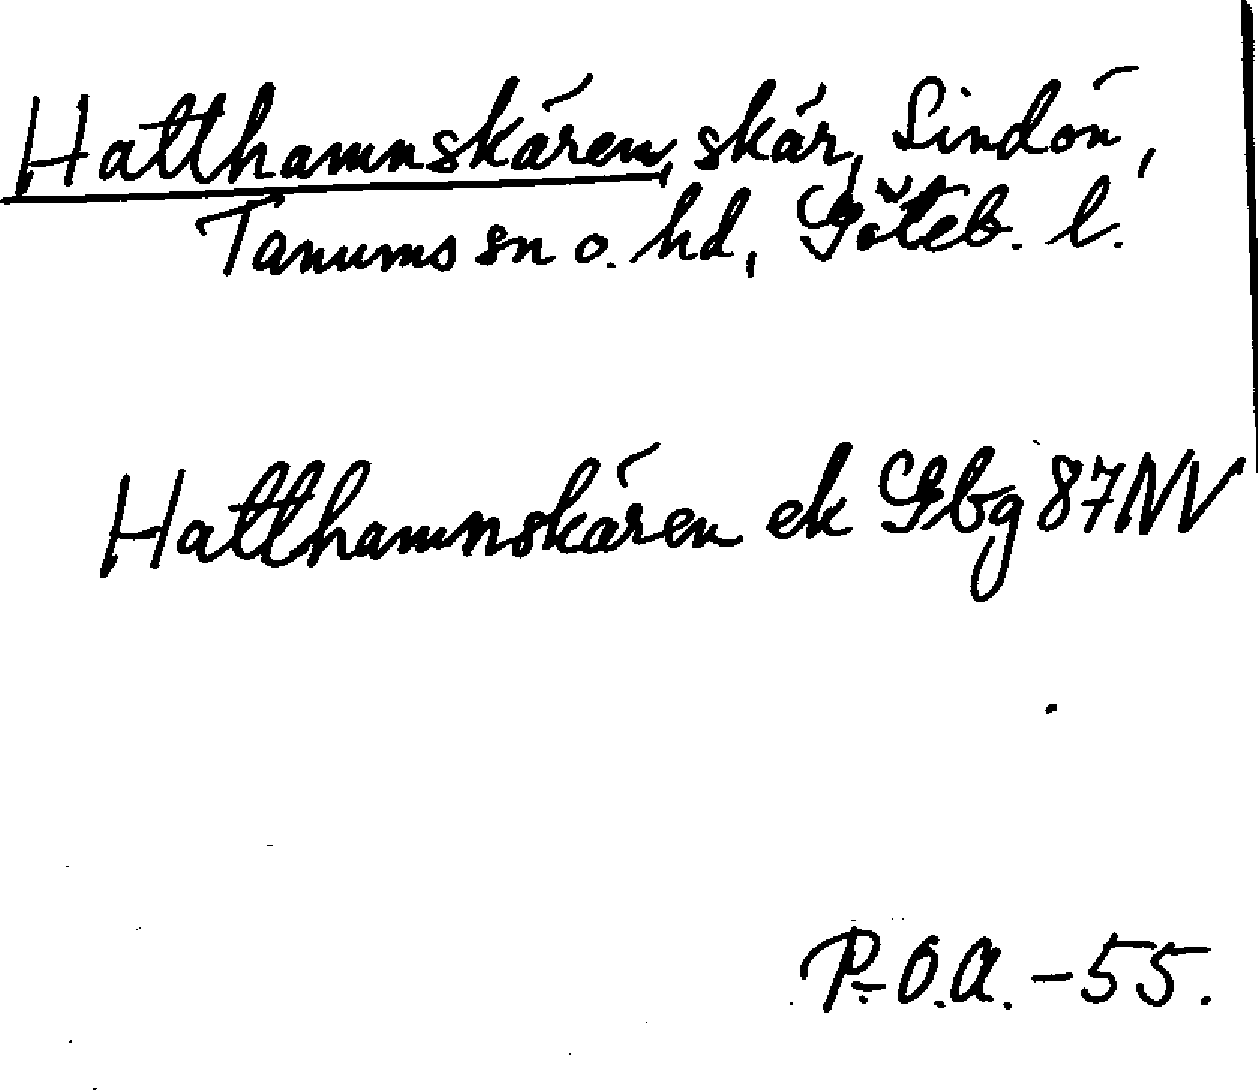 Hatthamnskären, skär, Lindön,
Tanums sn o. hd, Göteb. l.
Hatthamnskären ek Gbg 87NV
P-O.A. -55.